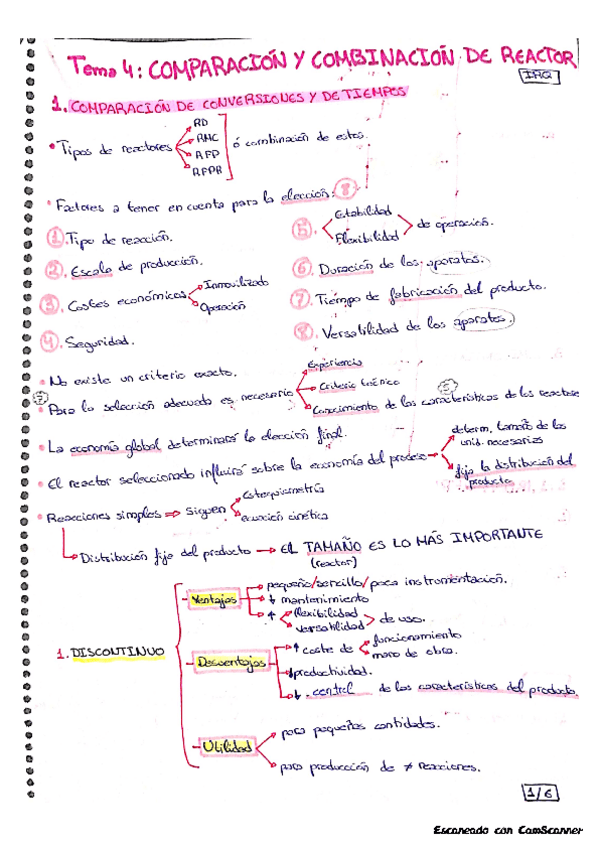 Tema 4: COMPARACIÓN Y COMBINACIÓN DE REACTOR
IRQ
1. COMPARACIÓN DE CONVERSIONES Y DE TIEMPOS
• Tipos de reactores → RD → RMC → RFP → RFPR ó combinación de estos.
• Factores a tener en cuenta para la elección: 8
1. Tipo de reacción.
2. Escala de producción.
3. Costes económicos → Inmovilizado → Operación
4. Seguridad.
5. Estabilidad Flexibilidad > de operación.
6. Duración de los aparatos.
7. Tiempo de fabricación del producto.
8. Versatilidad de los aparatos.
• No existe un criterio exacto.
• Para la selección adecuada es necesario → Experiencia → Criterio técnico → Conocimiento de las características de los reactores
• La economía global determinará la elección final.
• El reactor seleccionado influirá sobre la economía del proceso → determ. tamaño de las unid. necesarias → fija la distribución del producto
• Reacciones simples ⇒ siguen → Estequiometría → ecuación cinética
→ Distribución fija del producto → EL TAMAÑO ES LO MÁS IMPORTANTE
(reactor)
1. DISCONTINUO
- Ventajas → pequeño/sencillo/poca instrumentación.
→ ↓ mantenimiento
→ ↑ flexibilidad versatilidad > de uso.
- Desventajas → ↑ coste de < funcionamiento mano de obra.
→ ↓ productividad.
→ ↓ control de las características del producto.
- Utilidad → para pequeñas cantidades.
→ para producción de ≠ reacciones.
1/6
Escaneado con CamScanner